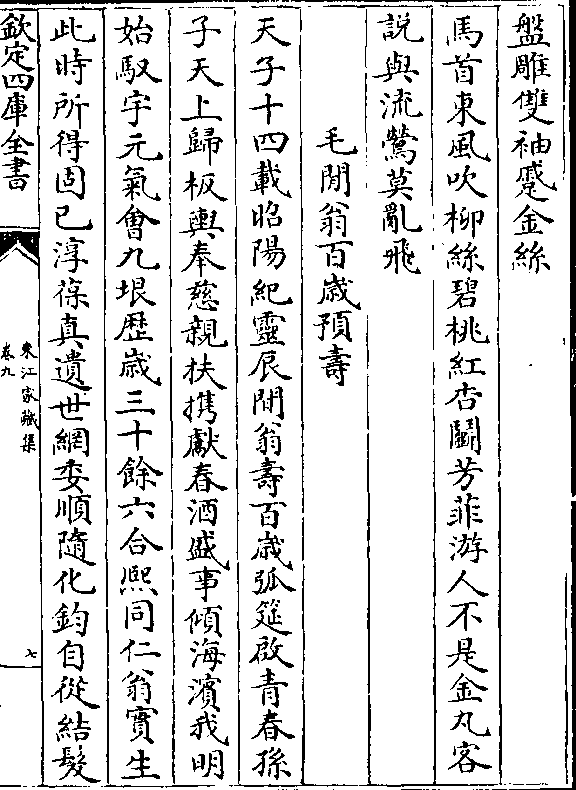 盤雕雙袖蹙金絲
馬首東風吹柳絲碧桃紅杏鬭芳菲游人不是金丸客
説與流鶯莫亂飛
毛閒翁百歳預壽
天子十四載昭陽紀靈辰閒翁壽百歳弧筵啟青春孫
子天上歸板輿奉慈親扶攜獻春酒盛事傾海濱我明
始馭宇元氣會九垠歴歳三十餘六合熙同仁翁實生
此時所得固已淳葆真遺世網委順隨化鈞自從結髮
欽定四庫全書
東江家藏集
卷九
七